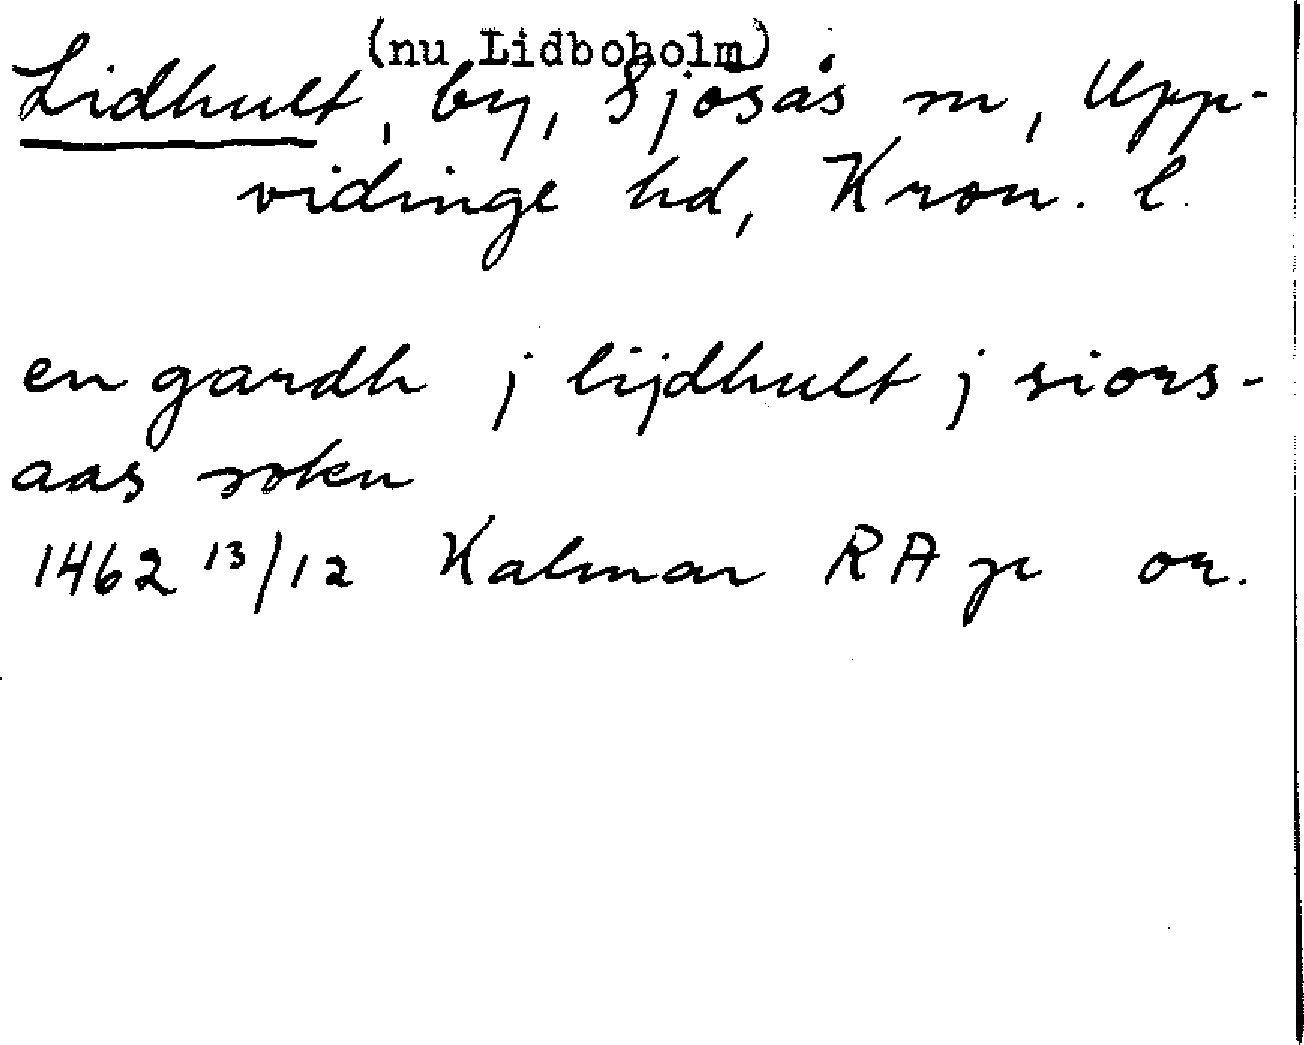 (nu Lidboholm)
Lidhult, by, Sjösås sn, Upp-
vidinge hd, Kron. l.
en gardh j lijdhult j siors-
aas sokn
1462 13/12 Kalmar RA pe or.